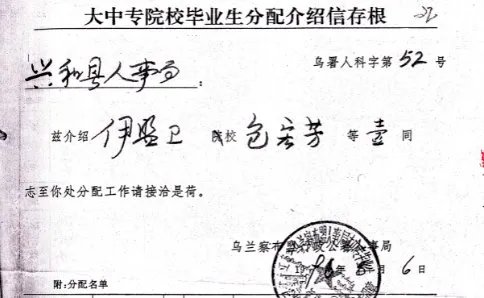 大中专院校毕业生分配介绍信存根
兴和县人事局：
乌署人科字第52号
兹介绍伊盟卫院校包宏芳等壹同
志至你处分配工作请接洽是荷。
乌兰察布盟行政公署人事局
年 月6日
附:分配名单